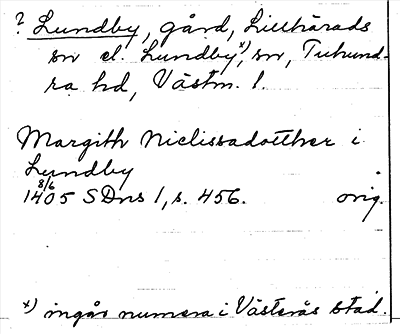 ? Lundby, gård, Lillhärads
sn el. Lundby x), sn, Tuhund-
ra hd, Västm. l.
Margith Niclissadotther i
Lundby
8/6
1405 SDns 1, s. 456. orig.
x) ingår numera i Västerås stad.